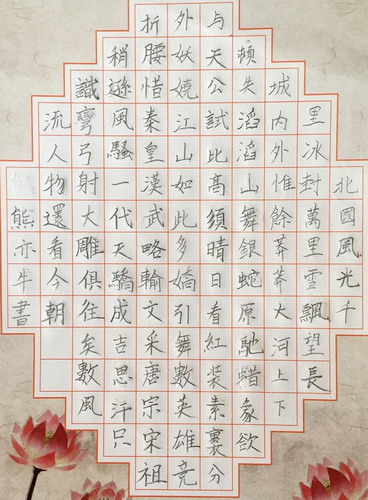 北國風光千
里冰封萬里雪飄望長
城内外惟餘莽莽大河上下
頓失滔滔山舞銀蛇原馳蜡象欲
与天公試比高須晴日看紅裝素裹分
外妖嬈江山如此多嬌引舞數英雄竞
折腰惜秦皇漢武略輸文采唐宗宋祖
稍遜風騷一代天驕成吉思汗只
識彎弓射大雕俱往矣數風
流人物還看今朝
熊亦牛書